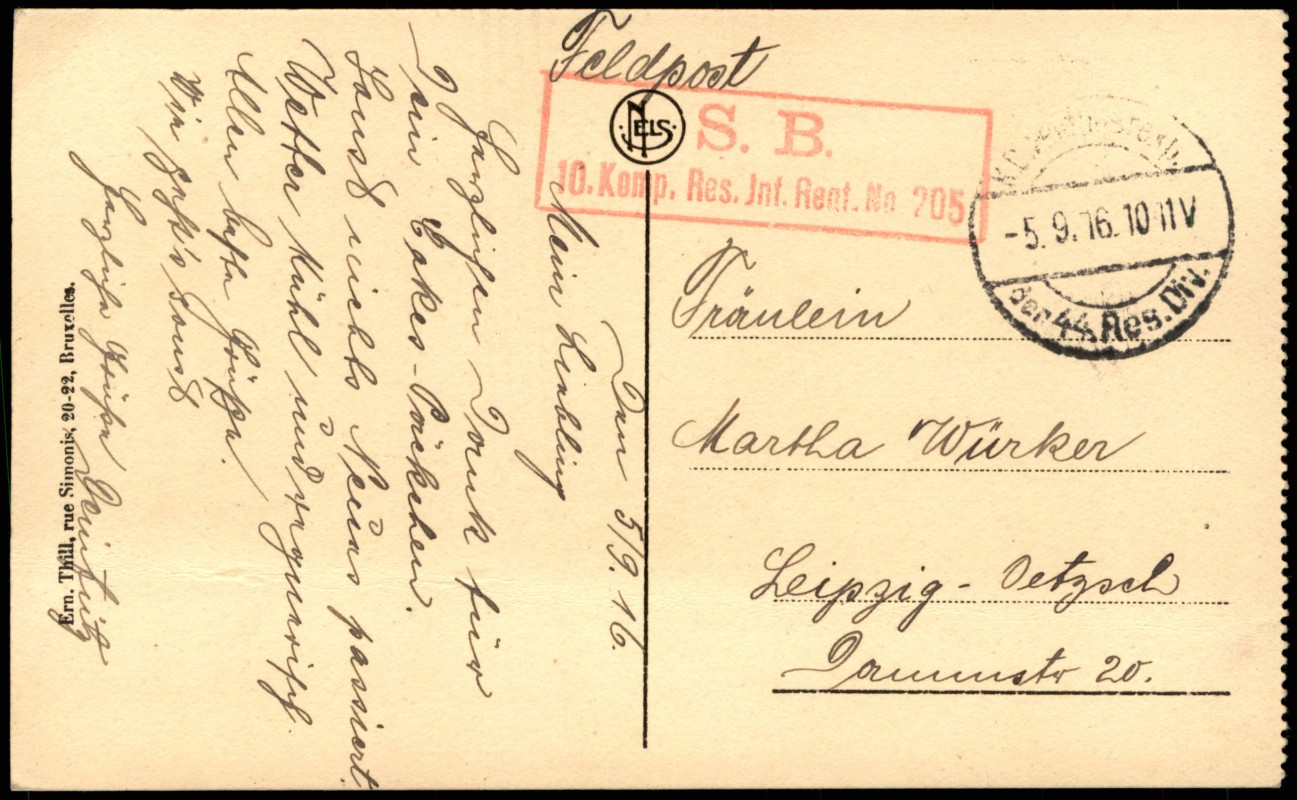 Feldpost
NELS
S. B.
10. Komp. Res. Inf. Regt. No 205
-5.9.16. 10-11V
der 44. Res. Div.
Fräulein
Martha Würker
Leipzig-Oetzsch
Dammstr 20.
Den 5/9. 16.
Mein Liebling
Herzlichen Dank für
Dein Cakes-Päckchen.
Sonst nichts Neues passiert.
Wetter kühl und regnerisch.
Allen beste Grüße.
Wie geht's sonst
Herzliche Grüße Dein Fritz
Ern. Thill, rue Simonis, 20-22, Bruxelles.